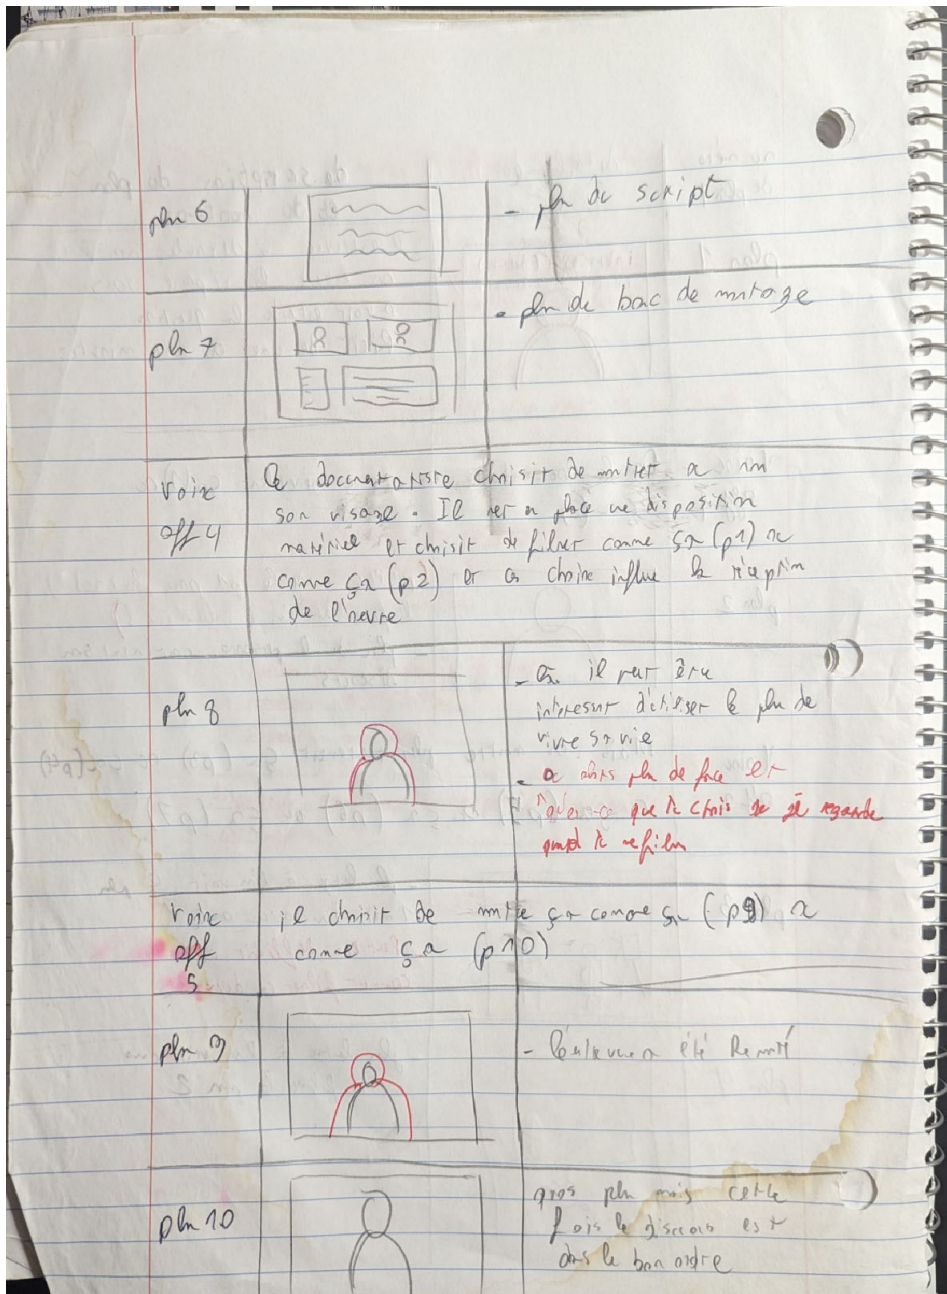 plan 6
- plan du script
plan 7
- plan de banc de montage
voix
off 4
le documentariste choisit de montrer ou non
son visage. Il met en place une disposition
matériel et choisit de filmer comme ça (p1) ou
comme ça (p2) et ce choix influe la réception
de l'œuvre
plan 8
il peut être
intéressant d'utiliser le plan de
vivre sa vie
ou alors plan de face et
que je choisis de
quand je me filme
voix
off
5
il choisit de montrer ça comme ça (p9) ou
comme ça (p10)
plan 9
- a été
plan 10
gros plan mais cette
fois le discours est
dans le bon ordre